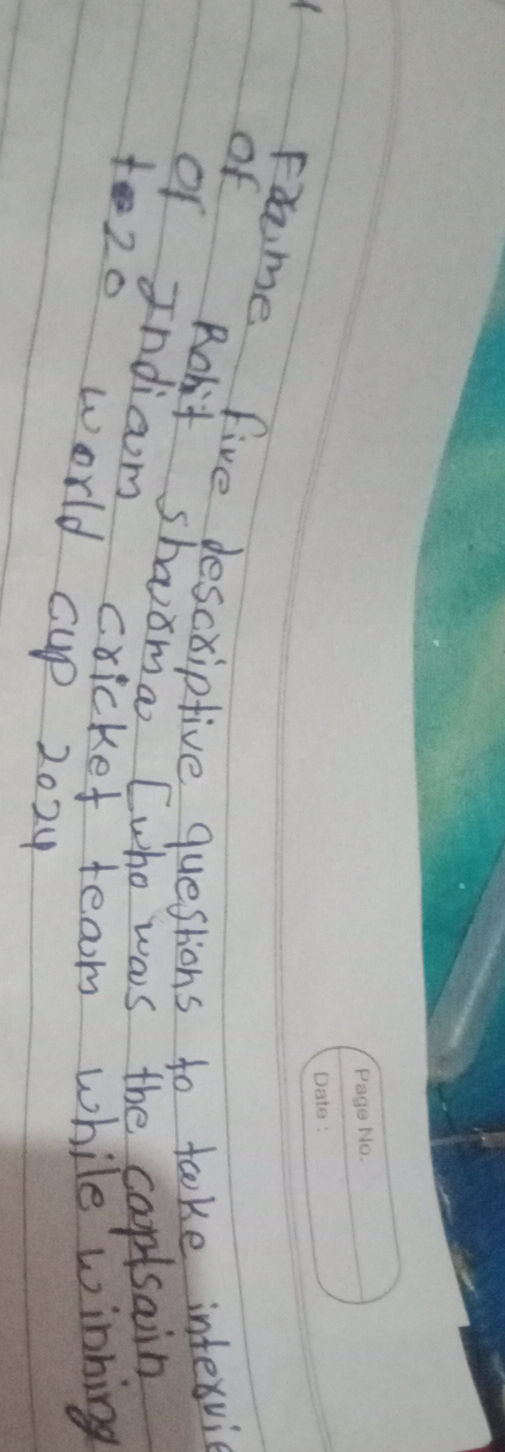 Page No.
Date :
Frame five descriptive questions to take intervie
of Rohit sharma [who was the captain
of Indian cricket team while winning
t-20 world cup 2024